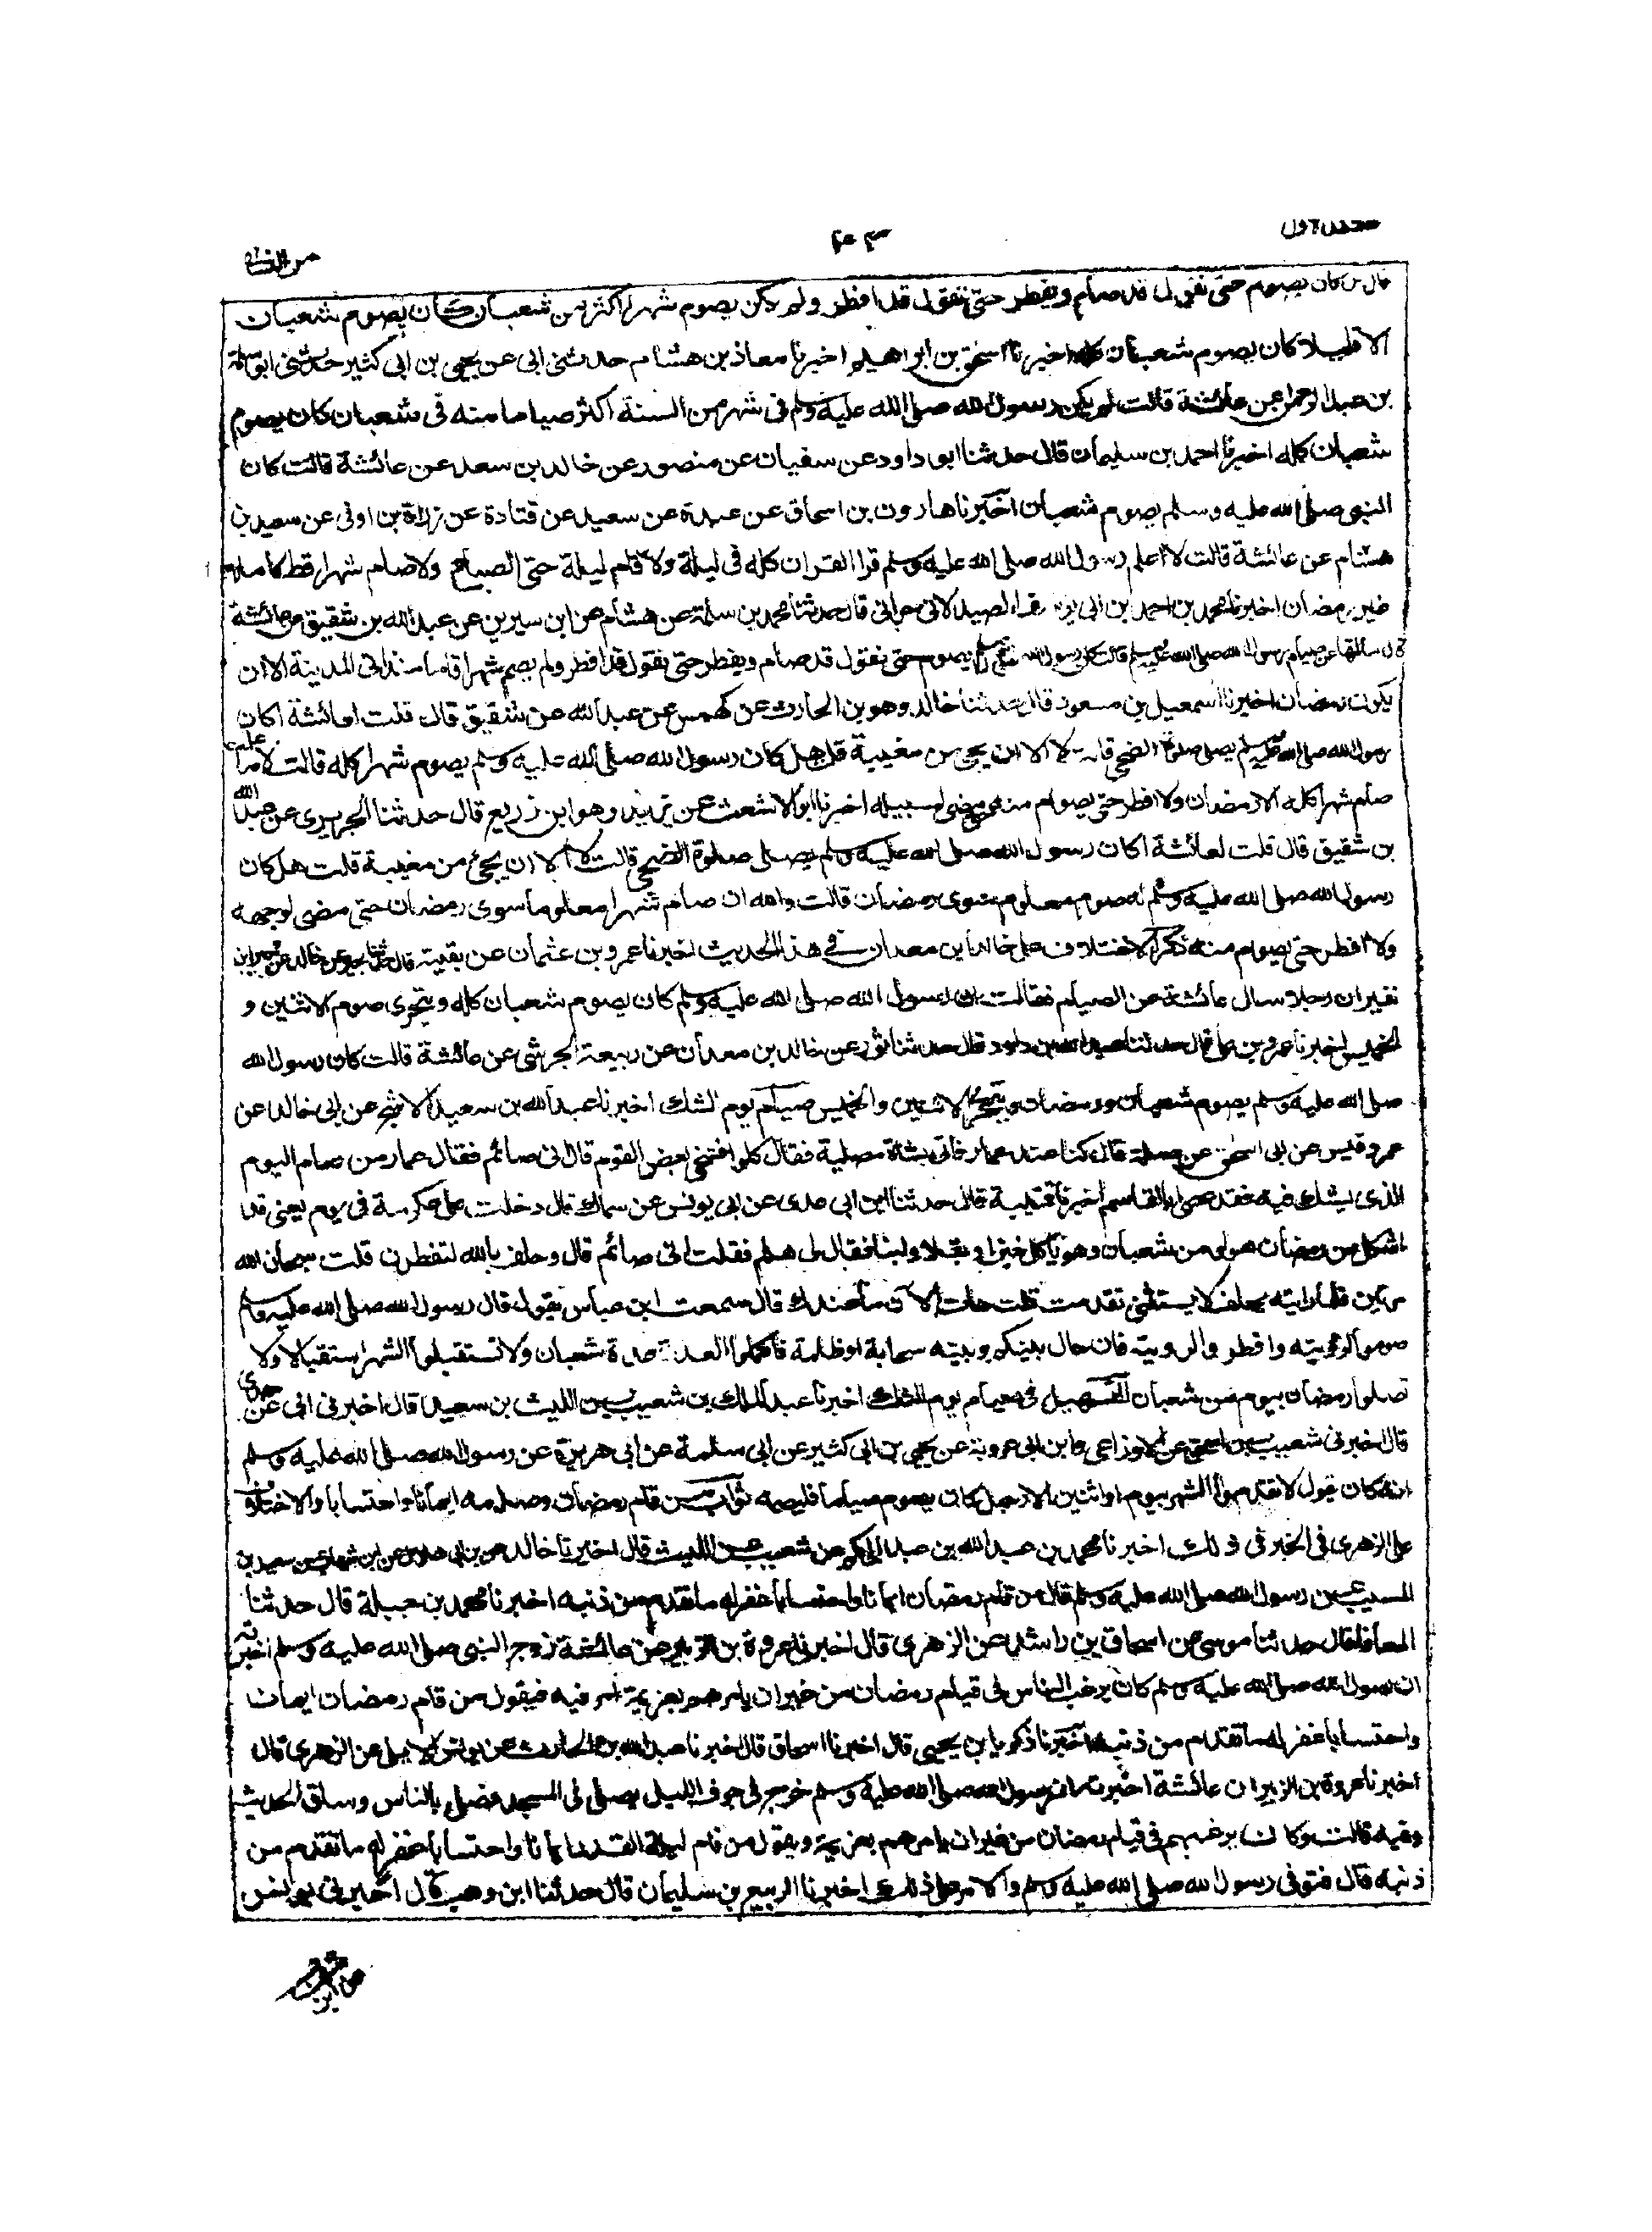 قالت كان يصوم حتى نقول قد صام ويفطر حتى نقول قد افطر ولم يكن يصوم شهرا اكثر من شعبان كان يصوم شعبان
الا قليلا كان يصوم شعبان كله اخبرنا اسحق بن ابراهيم اخبرنا معاذ بن هشام حدثنى ابى عن يحيى بن ابى كثير حدثنى ابو سلمة
بن عبد الرحمن عن عائشة قالت لم يكن رسول الله صلى الله عليه وسلم فى شهر من السنة اكثر صياما منه فى شعبان كان يصوم
شعبان كله اخبرنا احمد بن سليمان قال حدثنا ابو داود عن سفيان عن منصور عن خالد بن سعد عن عائشة قالت كان
النبى صلى الله عليه وسلم يصوم شعبان اخبرنا هارون بن اسحاق عن عبدة عن سعيد عن قتادة عن زرارة بن اوفى عن سعيد بن
هشام عن عائشة قالت لا اعلم رسول الله صلى الله عليه وسلم قرا القران كله فى ليلة ولا قام ليلة حتى الصباح ولا صام شهرا قط كاملا
غير رمضان اخبرنا محمد بن احمد بن ابى يوسف الصيدلانى حرانى قال حدثنا محمد بن سلمة عن هشام عن ابن سيرين عن عبد الله بن شقيق عن عائشة
قال سالتها عن صيام رسول الله صلى الله عليه وسلم قالت كان رسول الله صلى الله عليه وسلم يصوم حتى نقول قد صام ويفطر حتى نقول قد افطر ولم يصم شهرا تاما منذ اتى المدينة الا ان
يكون رمضان اخبرنا اسمعيل بن مسعود قال حدثنا خالد وهو بن الحارث عن كهمس عن عبد الله عن شقيق قال قلت لعائشة اكان
رسول الله صلى الله عليه وسلم يصلى صلوة الضحى قالت لا الا ان يجئ من مغيبة قلت هل كان رسول الله صلى الله عليه وسلم يصوم شهرا كله قالت لا ما علمت
صام شهرا كله الا رمضان ولا افطر حتى يصوم منه حتى مضى لسبيله اخبرنا ابو الاشعث عن يزيد وهو ابن زريع قال حدثنا الجريرى عن عبد الله
بن شقيق قال قلت لعائشة اكان رسول الله صلى الله عليه وسلم يصلى صلوة الضحى قالت لا الا ان يجئ من مغيبة قلت هل كان
رسول الله صلى الله عليه وسلم له صوم معلوم سوى رمضان قالت والله ان صام شهرا معلوما سوى رمضان حتى مضى لوجهه
ولا افطر حتى يصوم منه ذكر الاختلاف على خالد بن معدان فى هذا الحديث اخبرنا عمرو بن عثمان عن بقية قال حدثنا بحير عن خالد عن جبير بن
نفير ان رجلا سال عائشة عن الصيام فقالت ان رسول الله صلى الله عليه وسلم كان يصوم شعبان كله ويتحرى صوم الاثنين و
الخميس اخبرنا عمرو بن على قال حدثنا عبد الله بن داود قال حدثنا ثور عن خالد بن معدان عن ربيعة الجرشى عن عائشة قالت كان رسول الله
صلى الله عليه وسلم يصوم شعبان ورمضان ويتحرى الاثنين والخميس صيام يوم الشك اخبرنا عبد الله بن سعيد الاشج عن ابى خالد عن
عمرو قيس عن ابى اسحق عن صلة قال كنا عند عمار فاتى بشاة مصلية فقال كلوا فتنحى بعض القوم قال انى صائم فقال عمار من صام اليوم
الذى يشك فيه فقد عصى ابا القاسم اخبرنا قتيبة قال حدثنا ابن ابى عدى عن ابى يونس عن سماك قال دخلت على عكرمة فى يوم يعنى قد
اشكل من رمضان هو او من شعبان وهو ياكل خبزا وبقلا ولبنا فقال لى هلم فقلت انى صائم قال وحلف بالله لتفطرن قلت سبحان الله
مرتين فلما رايته يحلف لا يستثنى تقدمت قلت هات الان ما عندك قال سمعت ابن عباس يقول قال رسول الله صلى الله عليه وسلم
صوموا لرؤيته وافطروا لرويته فان حال بينكم وبينه سحابة او ظلمة فاكملوا العدة عدة شعبان ولا تستقبلوا الشهر استقبالا ولا
تصلوا رمضان بيوم من شعبان التسهيل فى صيام يوم الشك اخبرنا عبد الملك بن شعيب بن الليث بن سعيد قال اخبرنى ابى عن جدى
قال اخبرنى شعيب بن اسحق عن الاوزاعى وابن ابى عروبة عن يحيى بن ابى كثير عن ابى سلمة عن ابى هريرة عن رسول الله صلى الله عليه وسلم
انه كان يقول لا تقدموا الشهر بيوم او اثنين الا رجل كان يصوم صياما فليصمه ثواب من قام رمضان وصامه ايمانا واحتسابا والاختلاف
على الزهرى فى الخبر فى ذلك اخبرنا محمد بن عبد الله بن عبد الحكم عن شعيب عن الليث قال اخبرنا خالد عن بن ابى هلال عن ابن شهاب عن سعيد بن
المسيب عن رسول الله صلى الله عليه وسلم قال من قام رمضان ايمانا واحتسابا غفر له ما تقدم من ذنبه اخبرنا محمد بن جبلة قال حدثنا
المعافا قال حدثنا موسى عن اسحاق بن راشد عن الزهرى قال اخبرنى عروة بن الزبير عن عائشة زوج النبى صلى الله عليه وسلم اخبرته
ان رسول الله صلى الله عليه وسلم كان يرغب الناس فى قيام رمضان من غير ان يامرهم بعزيمة امر فيه فيقول من قام رمضان ايمانا
واحتسابا غفر له ما تقدم من ذنبه اخبرنا زكريا بن يحيى قال اخبرنا اسحاق قال اخبرنا عبد الله بن الحارث عن يونس الايلى عن الزهرى قال
اخبرنا عروة بن الزبير ان عائشة اخبرته ان رسول الله صلى الله عليه وسلم خرج فى جوف الليل يصلى فى المسجد فصلى بالناس وساق الحديث
وفيه قالت وكان يرغبهم فى قيام رمضان من غير ان يامرهم بعزيمة ويقول من قام ليلة القدر ايمانا واحتسابا غفر له ما تقدم من
ذنبه قال فتوفى رسول الله صلى الله عليه وسلم والامر على ذلك اخبرنا الربيع بن سليمان قال حدثنا ابن وهب قال اخبرنى يونس